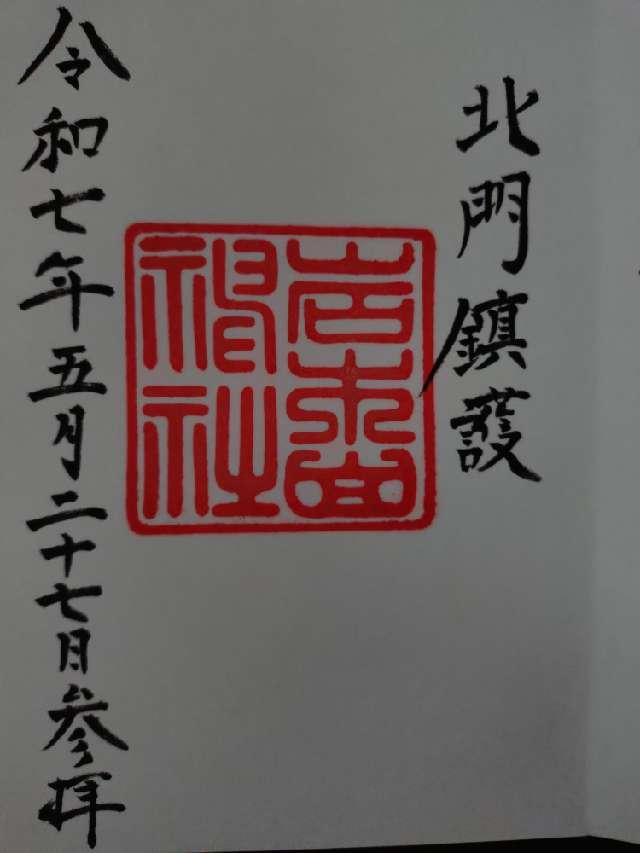 北門鎮護
岩木山
神社
令和七年五月二十七日参拝